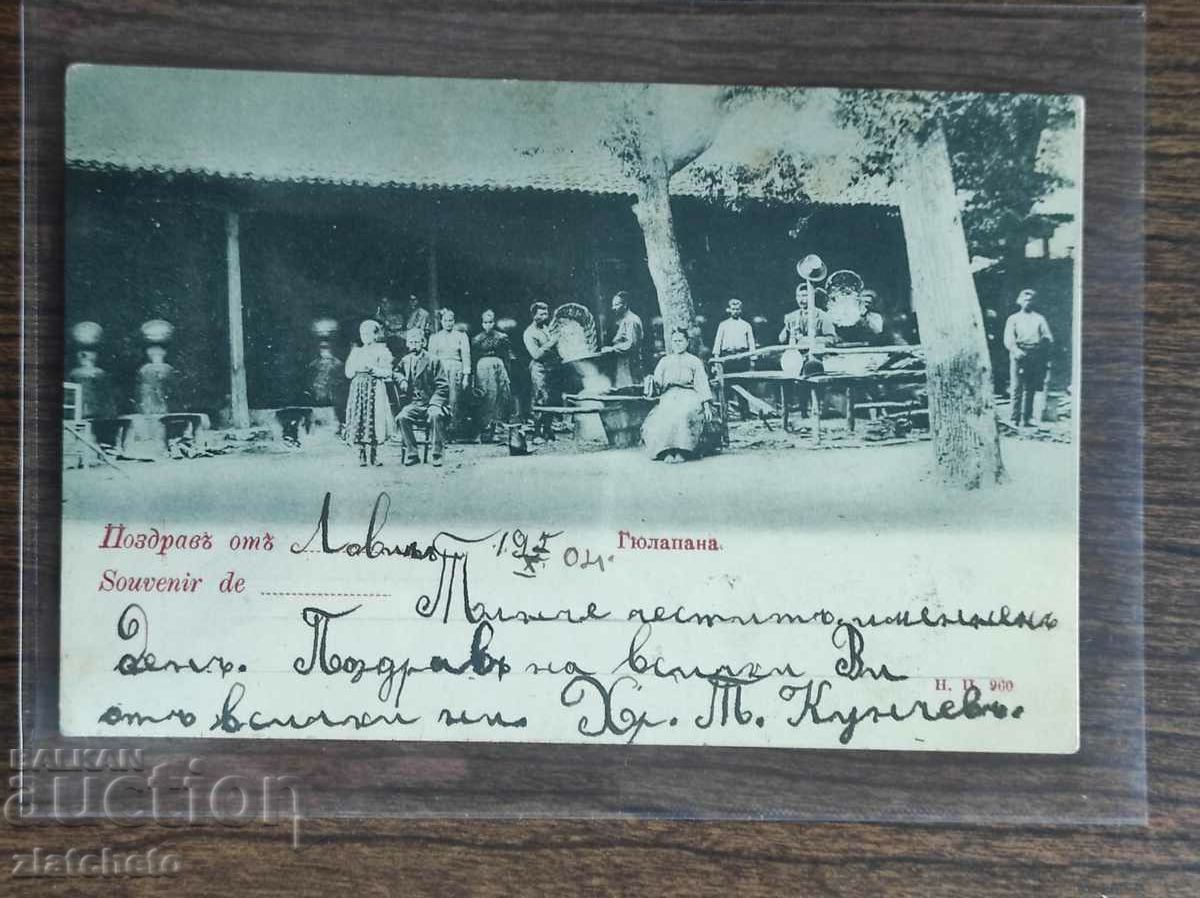 Поздравъ отъ Ловичъ 19 5/X 04. Гюлапана.
Souvenir de
Минче честитъ имененъ
День. Поздравъ на всички Ви
Н. П. 900
отъ всички ни. Хр. Т. Кунчевъ.
BALKAN
auction
zlatcheto